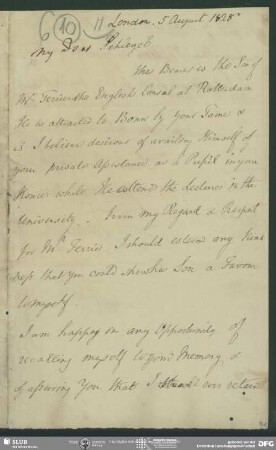 6 10 11 London. 5 August 1828
My Dear Schlegel
The Bearer is the Son of
Mr Ferrier the English Consul at Rotterdam
He is attracted to Bonn by your Fame &
is I believe desirous of availing Himself of
your private Assistance as a Pupil in your
House while He attend the Lectures in the
University. From my Regard & Respect
for Mr Ferrier I should esteem any Kind
ness that you could shew his Son a Favour
to myself
I am happy in any Opportunity of
recalling myself to your Memory &
of assuring You that I ever retain
SLUB
DFG